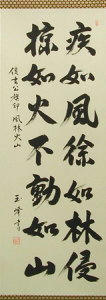 疾如風徐如林侵
掠如火不動如山
信玄公旗印 風林火山
玉峰書